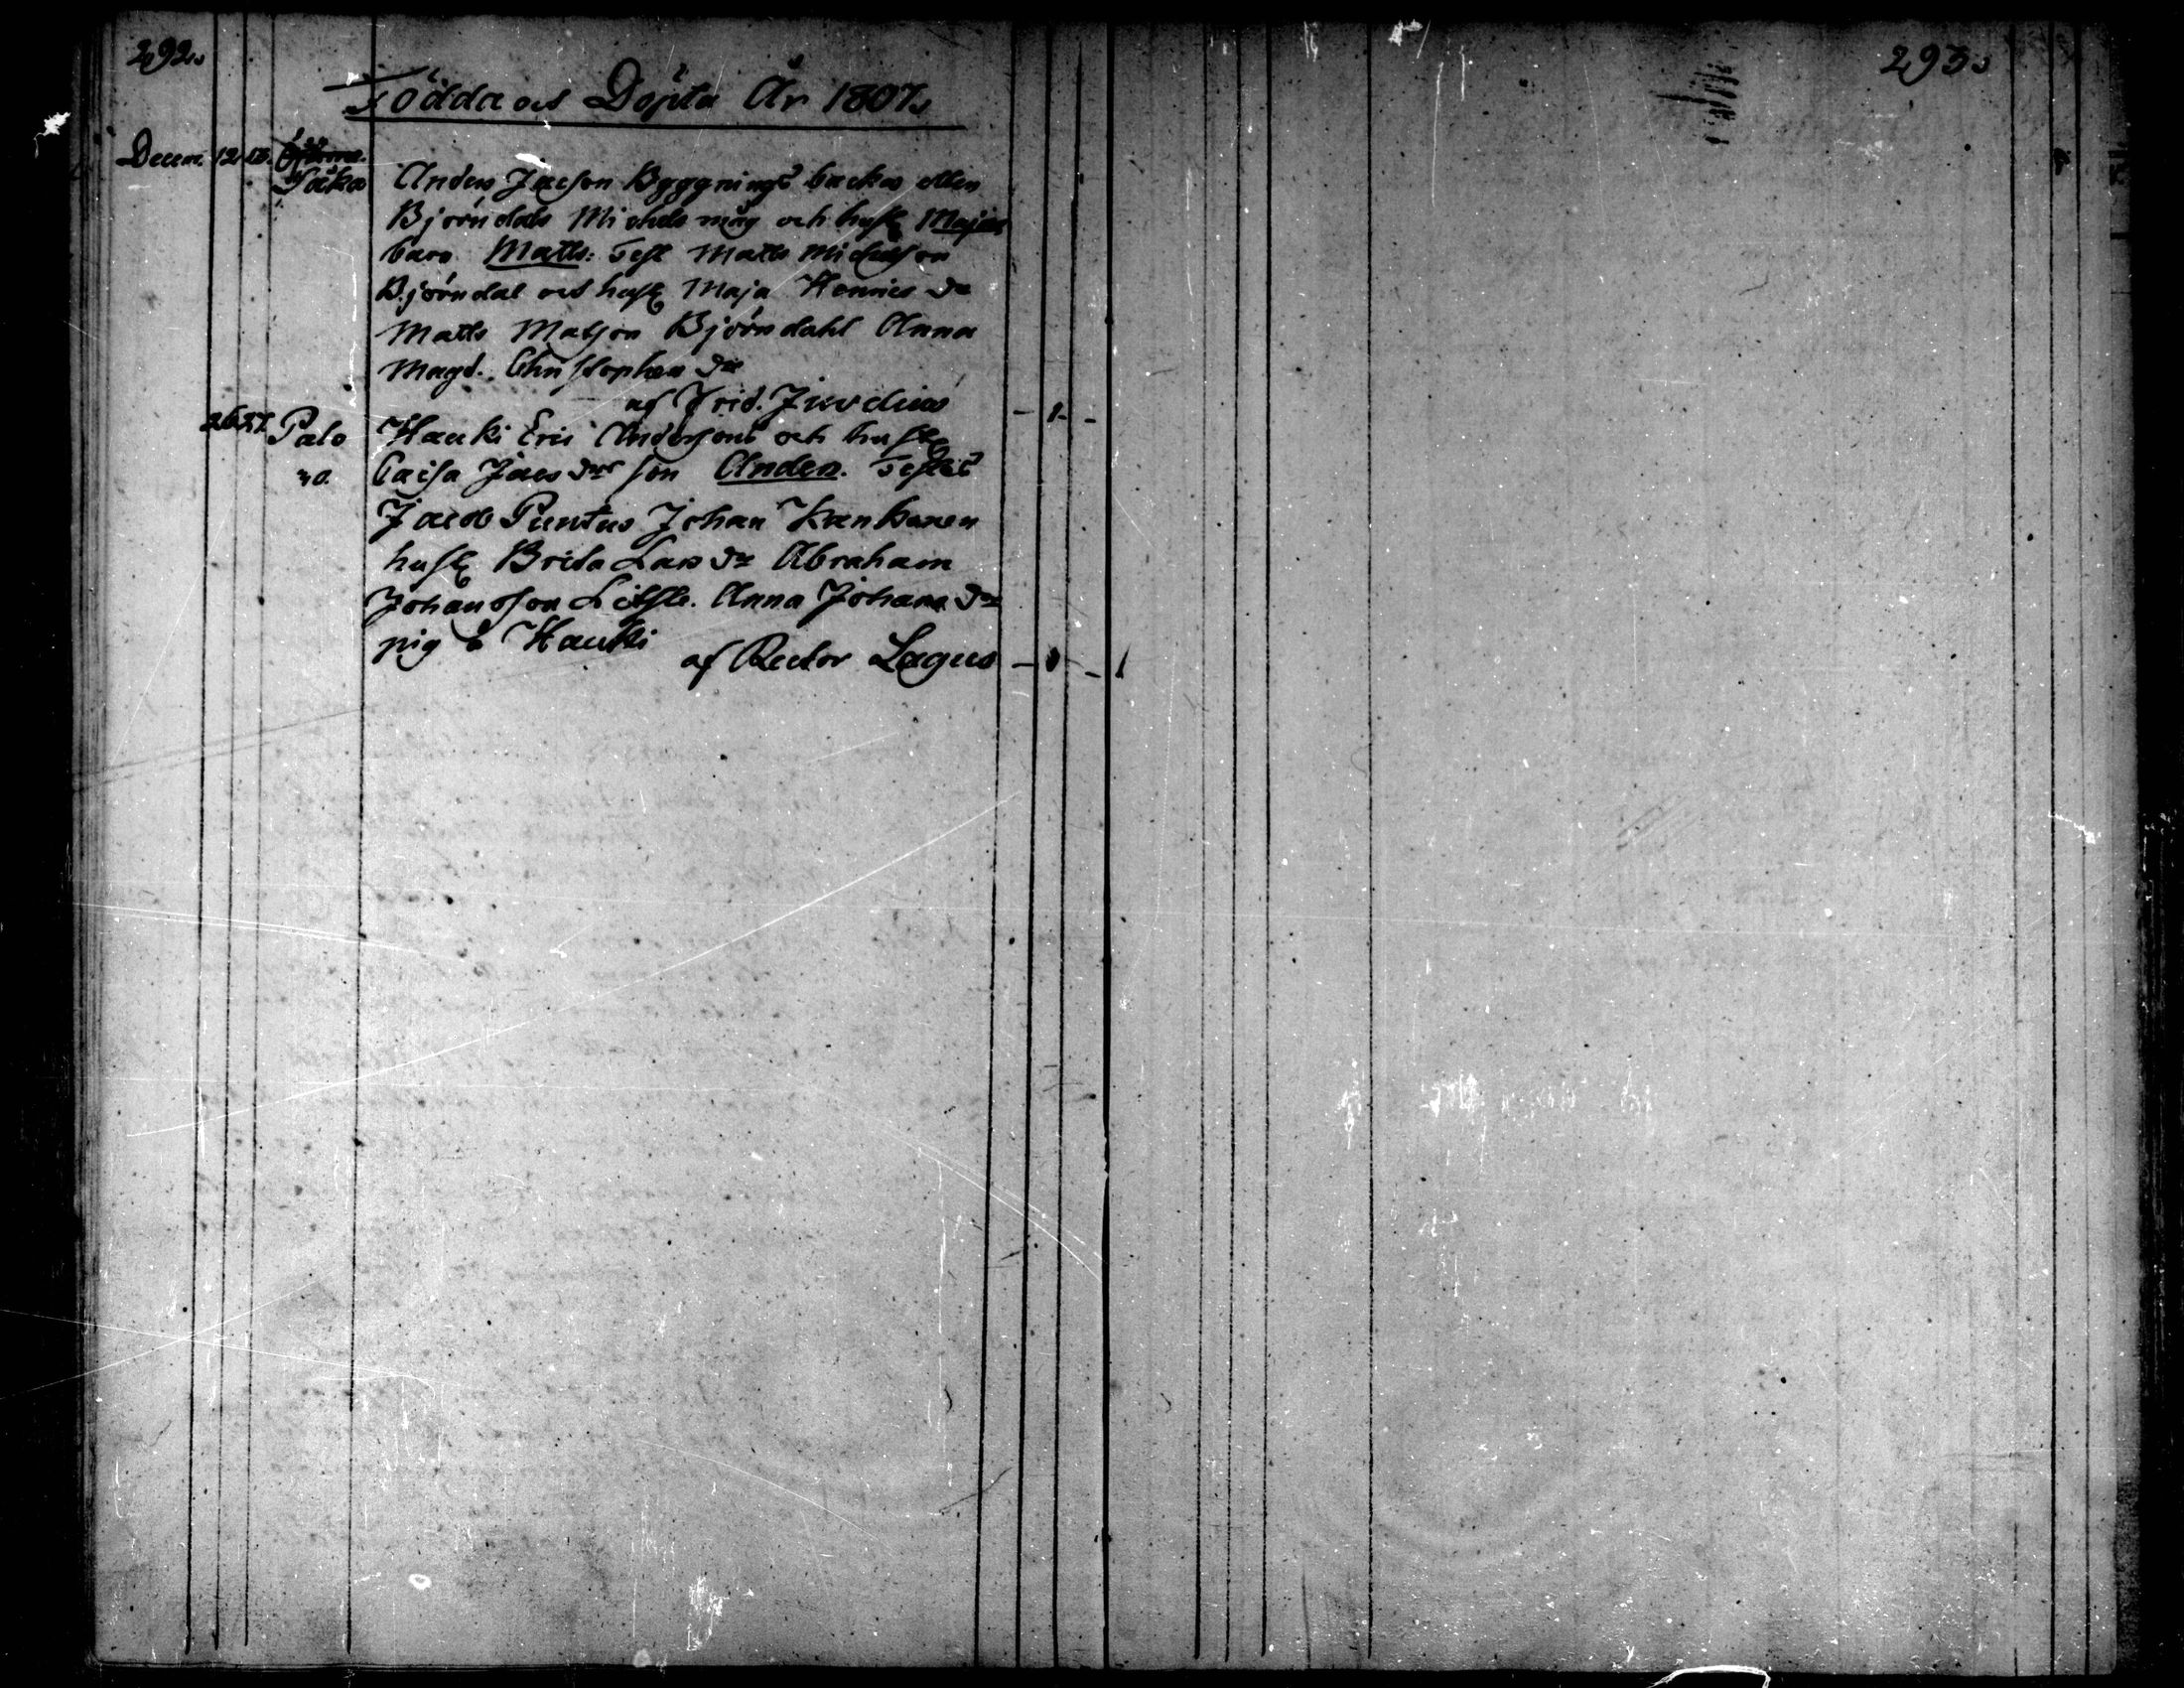 292.
293.
Födda och Döpta År 1807.
Decem. 12 13.
Påka Anders Jacson Byggnings backas eller
Björndals Michels måg och hust. Majas
barn Matts: Test Matts Michelson
Björndal och hust. Maja Henrics dr
Matts Matson Björndahl Anna
Magd. Christophers dr
af Frid. Juvelius – 1 –
26 27. Palo Hauki Eric Andersons och hust
no. Caisa Jacs dr son Anders. Testes
Jacob Puntus Johan Kankonen
hust. Brita Lars dr Abraham
Johansson Anna Johans dr
pig å Hauki
af Rector Lagus – – 1